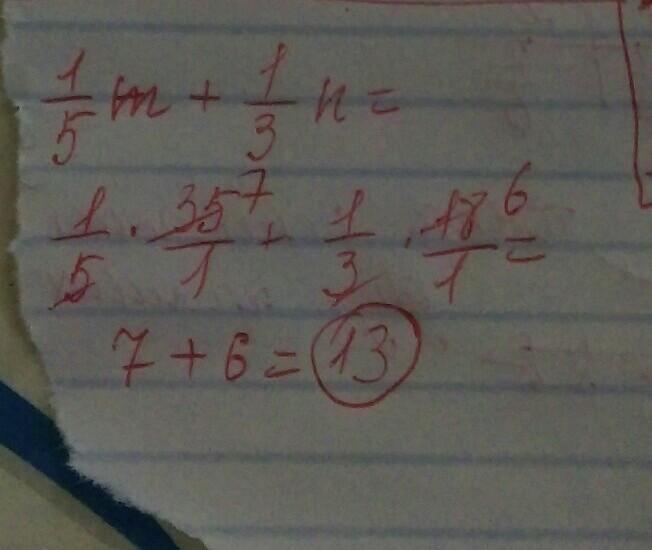 1/5 m + 1/3 n =
1/5 · 35/1 7 + 1/3 · 18/1 6 =
7 + 6 = 13